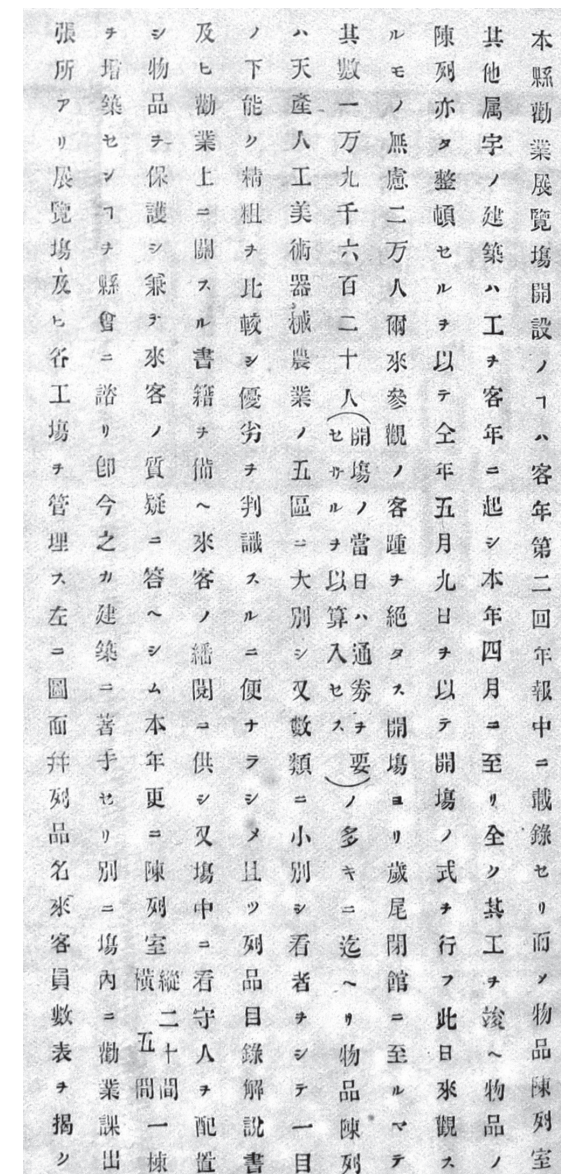 本縣勸業展覽塲開設ノヿハ客年第二回年報中ニ載錄セリ而ノ物品陳列室
其他属宇ノ建築ハ工ヲ客年ニ起シ本年四月ニ至リ全ク其工ヲ竣ヘ物品ノ
陳列亦タ整頓セルヲ以テ仝年五月九日ヲ以テ開塲ノ式ヲ行フ此日來觀ス
ルモノ無慮二万人爾來參觀ノ客踵ヲ絕タス開塲ヨリ歲尾閉館ニ至ルマテ
其數一万九千六百二十人(開塲ノ當日ハ通券ヲ要セサルヲ以算入セス)ノ多キニ迄ヘリ物品陳列
ハ天產人工美術器械農業ノ五區ニ大別シ又數類ニ小別シ看者ヲシテ一目
ノ下能ク精粗ヲ比較シ優劣ヲ判識スルニ便ナラシメ且ツ列品目錄解說書
及ヒ勸業上ニ關スル書籍ヲ備ヘ來客ノ繙閱ニ供シ又塲中ニ看守人ヲ配置
シ物品ヲ保護シ兼テ來客ノ質疑ニ答ヘシム本年更ニ陳列室縱二十間橫五間一棟
ヲ增築セシヿヲ縣會ニ諮リ卽今之カ建築ニ著手セリ別ニ塲內ニ勸業課出
張所アリ展覽塲及ヒ各工塲ヲ管理ス左ニ圖面幷列品名來客員數表ヲ揭ク